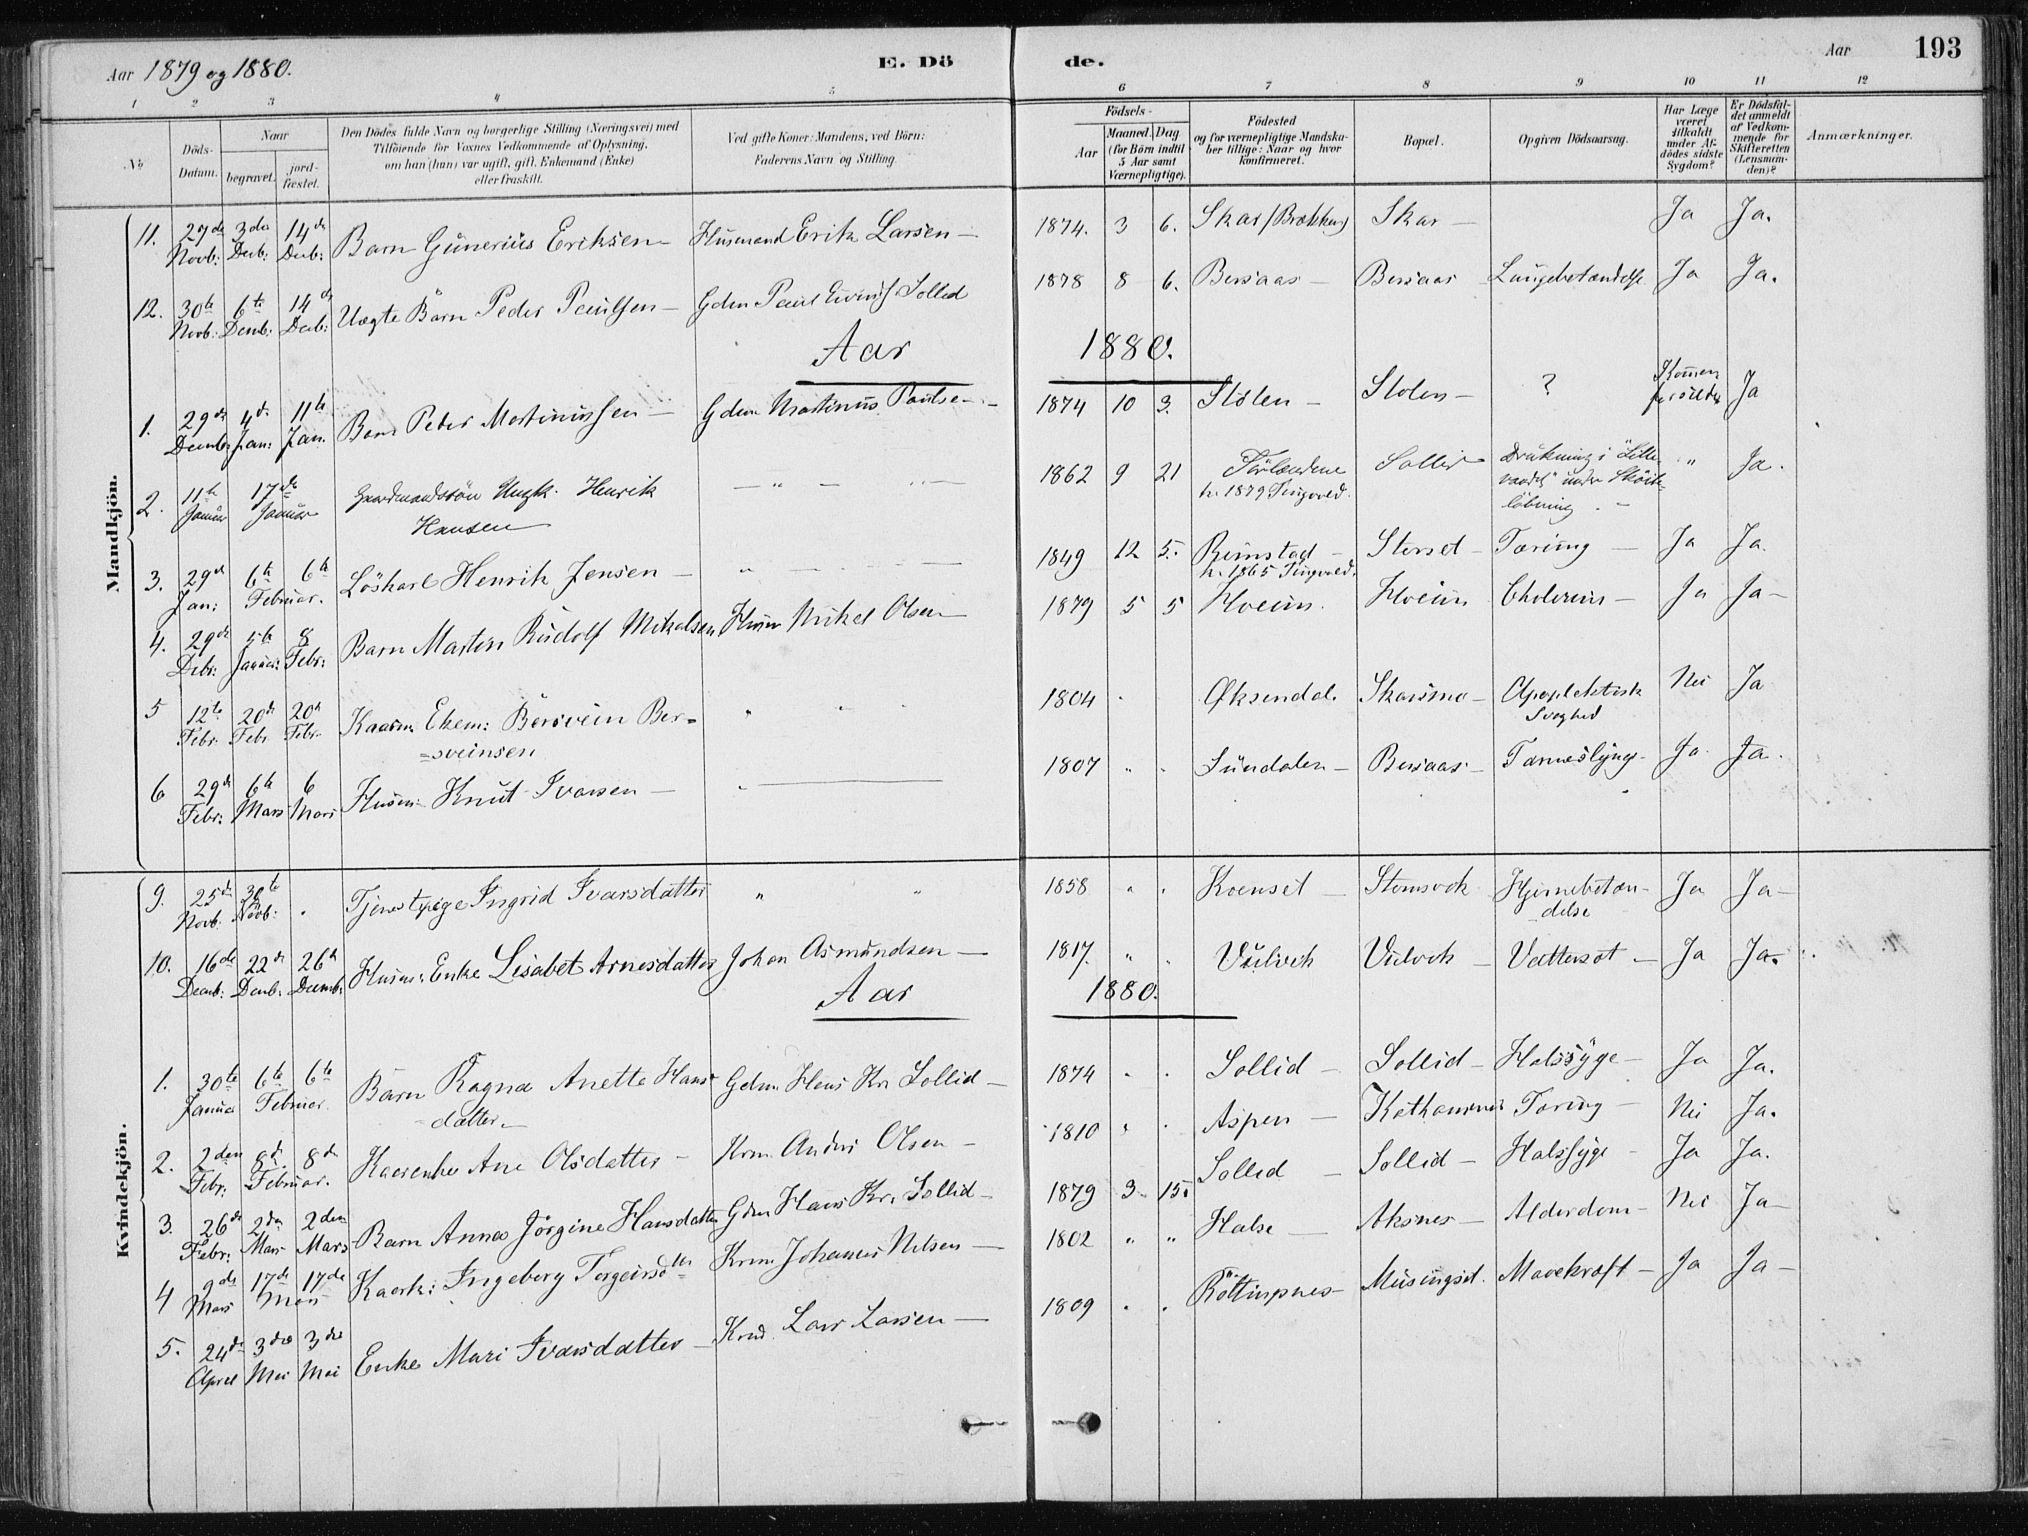 Aar 1879 og 1880.
E. Dö
de.
Aar
193
1 2 3 4 5 6 7 8 9 10 11 12
No
Döds-Datum.
Naar
begravet.
jord-fæstet.
Den Dödes fulde Navn og borgerlige Stilling (Næringsvei) med
Tilföiende for Voxnes Vedkommende af Oplysning,
om han (hun) var ugift, gift, Enkemand (Enke)
eller fraskilt.
Ved gifte Koner: Mandens, ved Börn:
Faderens Navn og Stilling.
Födsels-
Aar
Maaned. Dag
(for Börn indtil
5 Aar samt
Værnepligtige).
Födested
og for værnepligtige Mandska-
ber tillige: Naar og hvor
konfirmeret.
Bopæl.
Opgiven Dödsaarsag.
Har Læge
været
tilkaldt
under Af-
dödes sidste
Sygdom?
Er Dödsfal-
det anmeldt
af Vedkom-
mende for
Skifteretten
(Lensman-
den)?
Anmærkninger.
Mandkjön.
11. 29de Novb: 3die Decb: 14de Decb: Barn Gunerius Eriksen – Husmand Erik Larsen – 1874. 3 6. Skar (Brekken) Skar – Ja Ja.
12. 30te Novb: 6te Decmb: 14de Decb: Uægte Barn Peder Paulsen – Gdm Paul Sollid 1878 8 6. Bersaas – Bersaas Lungebetændelse Ja Ja.
Aar 1880.
1. 29de Decemb: 4de Jan: 11te Jan. Barn Peder Martinussen – Gdm Martinus Paulsen – 1874 10 3. Stölen – Stolen – ? Ja
2. 11te Januar 17de Januar Gaardmandssön Ungk. Henrik Hansen – " – 1862 9 21 h. 1879 Tingvold. Sollid Drukning i "Lille-vandet" under Sköite-löbning. – " Ja.
3. 29de Jan: 6te 6te Februar. Löskarl Henrik Jensen – " – 1849 12 5. Rimstad – h. 1865 Tingvold. Storset – Tæring – Ja Ja.
4. 29de Debr: 5te Januar: 8 Febr: Barn Martin Rudolf Mikalsen Husm Mikel Olsen – 1879 5 5 Hoem. Hoem Cholerin – Ja Ja –
5 12te Febr. 20de Febr 20de Febr. Kaarm: Ekem: Bersvein Ber-
-sveinsen " " 1804 . Öksendal. Skarsmo – Apoplektisk Svaghed Nei Ja
6 29de Febr: 6te Mars 6 Mars Husm: Knut Ivarsen – 1807 " . Sundalen – Bersaas – Tarmeslyng – Ja. Ja.
Kvindekjön.
9. 25de Novb. 30te Novb: . Tjenestpige Ingrid Ivarsdatter " " 1858 " . Koenset – Stomsvik Hjernebetæn-
delse Ja Ja –
10. 16de Decmb: 22de Decmb: 26de Decemb: Husm: Enke Lisabet Arnesdatter Johan Asmundsen – 1817. " . Vulvik Vulvik – Vattersot – Ja Ja.
Aar 1880.
1. 30te Januar 6te 6te Februar. Barn Ragna Anette Hans-
datter – Gdm. Hans Kr. Sollid – 1874 . . Sollid – Sollid – Halssyge – Ja Ja.
2. 2den Febr. 8de 8de Februar. Kaarenke Ane Olsdatter – Krm. Anders Olsen – 1810 " . Aspen – Tæring – Nei Ja.
3. 26de Febr: 2den Mars 2den Mars Barn Anna Jörgine Hansdatter Gdm Hans Kr. Sollid – 1879 3 15. Sollid – Sollid – Halssyge – Ja Ja.
4 9de Mars 17de 17de Mars Kaark: Ingeborg Torgeirsdtr Krm. Johannes Nilsen – 1802 " " Halse – Aksnes – Alderdom – Nei Ja –
5. 24de April 3die Mai 3die Mai Enke Mari Ivarsdatter – Lars Larsen – 1809 . . Mavekræft – Ja Ja –